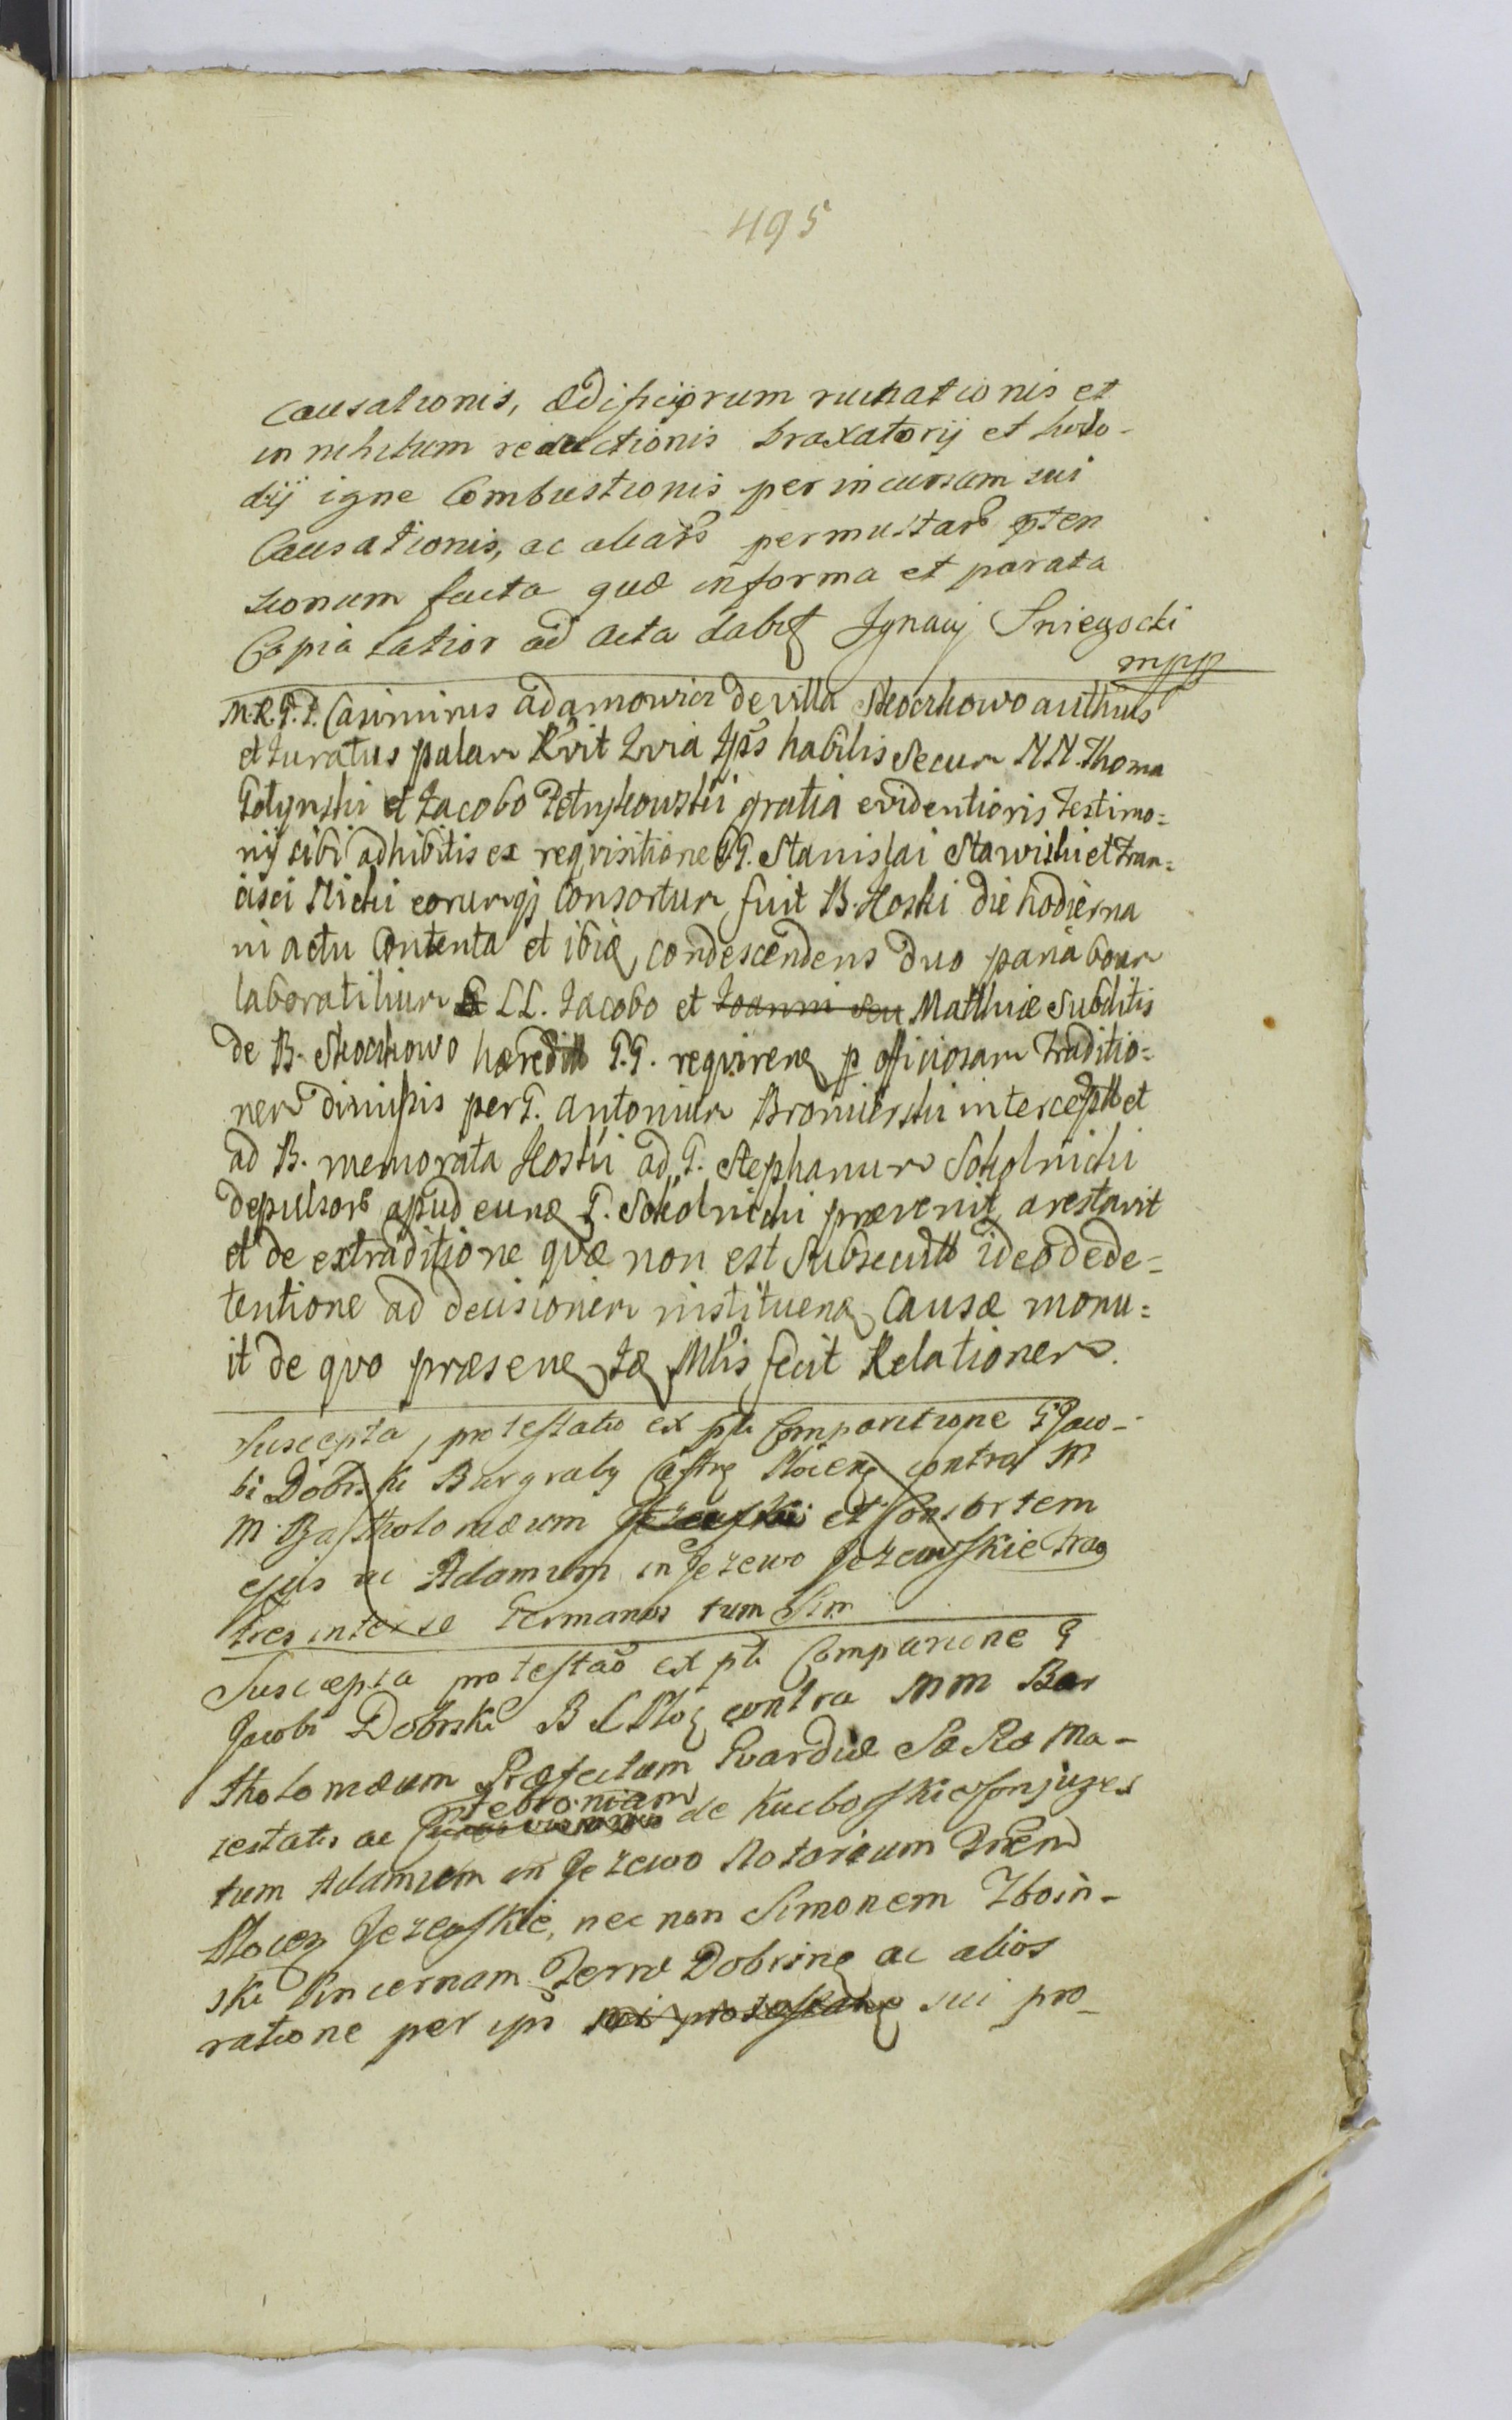 495
Causationis, ædificiorum ruinationis et
in nihilum reductionis braxatorij et hoło-
dij igne Combustionis per incursam sui
Causationis, ac aliars permultars pten
sionum facta quæ in forma et parata
Copia latior ad acta dabit Ignacij Sniegocki
mpp
M.R.G.T. Casimirus Adamowicz de villa authus
et Juratus palam habilis Secum NN. Thoma
et Jacobo gratia evidentioris testimo=
nij sibi adhibitis ex reqvisitione GG. Stanislai Stawiski et Fran=
cisci Nicki eorumqz Consortum fuit B. Koski die hodierna
in actu Contenta et ibiq condescendens duo paria boum
laboratilium a LL. Jacobo et Joanni seu Matthiæ Subditis
de B. hæredit G.G. reqvirenq p officiosam Traditio=
nem dimissis per G. Antonium Bromierski intercept et
ad B. memorata Koski ad G. Stephanum Sokolnicki
depulsors apud eunq G. Sokolnicki prævenit, arestavit
et de extraditione qvæ non est Subsecutt ideo de de=
tentione ad decisionem instituenq Causæ monu=
it de qvo præsens fecit Relationem.
Suscepta, protestatio ex pti Comparitione G Jaco-
bi Dobrski Burgraby Castre Plocens contra M
M. Bartholomæum Jezewski et Consortem
ejus ac Adamum in Jezewo Jezewskie fra
tres inter se Germanos tum Sim
Suscepta protestao ex pti Comparicione G
Jacobi Dobrski B C Ploc contra MM Bar
tholomæum Præfectum Gvardiæ Sæ Ræ Ma-
iestatis ac de Kucborskie Conjuges
tum Adamum in Jezewo Notarium Tren
Plocen Jezewskie, nec non Simonem Zboin-
ski Pincernam Terræ Dobrinen ac alios
ratione per ips sui protestane sui pro-